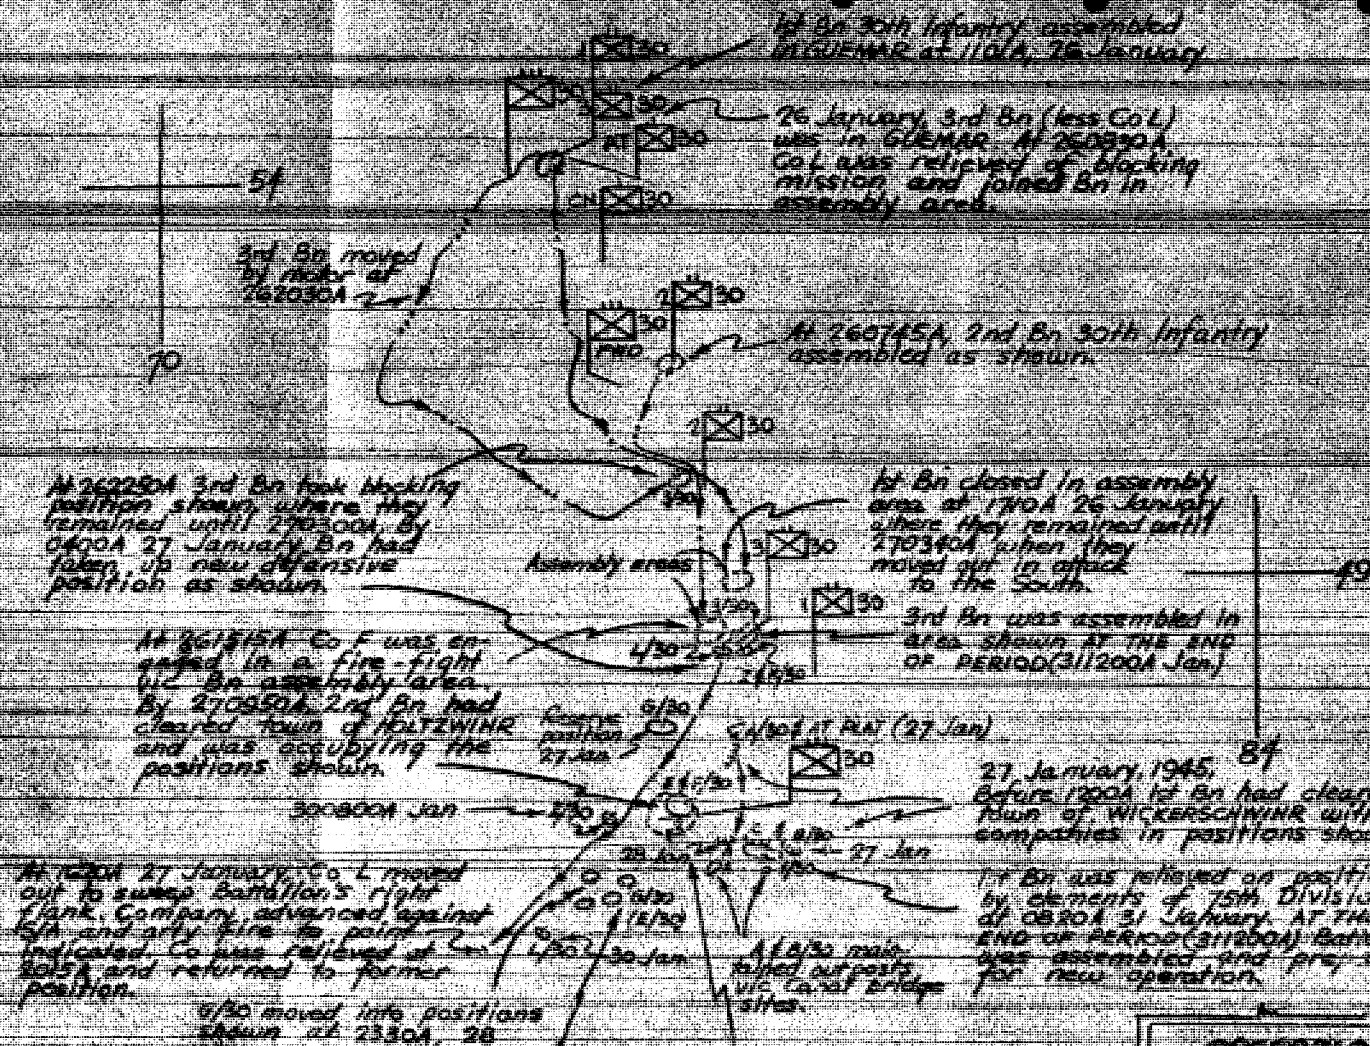 1st Bn 30th Infantry assembled
in GUEMAR at 1101A, 26 January
30
30
30
AT 30
26 January, 3rd Bn (less Co L)
was in GUEMAR. At 260830A
Co L was relieved of blocking
mission and joined Bn in
assembly area.
54
70
CN 30
3rd Bn moved
by motor at
262030A
2 30
30
FWD
At 260745A, 2nd Bn 30th Infantry
assembled as shown.
2 30
At 262250A 3rd Bn took blocking
position shown, where they
remained until 270300A. By
0400A 27 January Bn had
taken up new defensive
position as shown.
1st Bn closed in assembly
area at 1710A 26 January
where they remained until
270340A when they
moved out in attack
to the South.
49
84
Assembly areas
3 30
1 30
3rd Bn was assembled in
area shown AT THE END
OF PERIOD (311200A Jan)
At 261515A Co F was en-
gaged in a fire-fight
vic Bn assembly area.
By 270950A 2nd Bn had
cleared town of HOLTZWIHR
and was occupying the
positions shown.
L/30
Reserve
position
27 Jan
G/30
AT PLAT (27 Jan)
30
300800A Jan
27 January, 1945.
Before 1200A 1st Bn had clear
town of WICKERSCHWIHR with
companies in positions sho
27 Jan
28 Jan
27 January Co L moved
out to sweep Battalion's right
flank. Company advanced against
S/A and arty fire to point
indicated. Co was relieved at
2015A and returned to former
position.
1st Bn was relieved on positi
by elements of 75th Divisio
at 0820A 31 January. AT THE
END OF PERIOD (311200A) Batt
was assembled and
for new operation.
L/30
30 Jan
A & B/30 main-
tained outposts
vic Canal bridge
sites.
moved into positions
shown at 2330A, 28